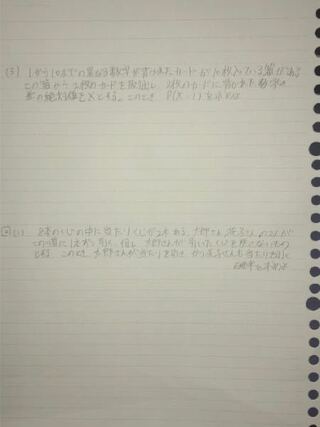 (3) 1から10までの異なる数字が書かれたカードが10枚入っている箱がある
この箱から2枚のカードを取出し 2枚のカードに書かれた数字の
差の絶対値をXとする。このとき P(X=1)を求めよ
(1) 8本のくじの中に当たりくじが2本ある。太郎さん、花子さんの2人が
この順に1本ずつ引く。但し、太郎さんが引いたくじを戻さないもの
とする。このとき、太郎さんが当たりを引き、かつ花子さんも当たりを引く
確率を求めよ